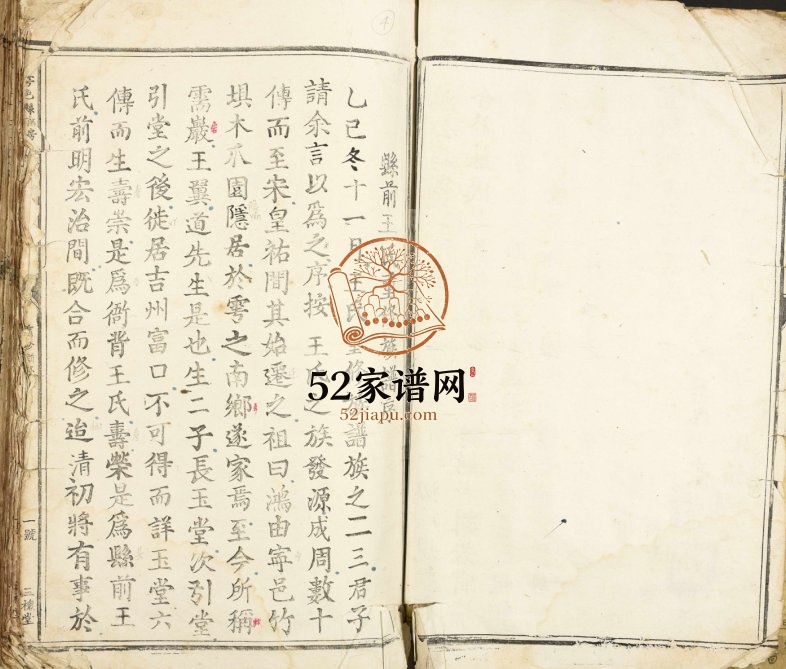 縣前王氏
乙巳冬十一月王氏修譜族之二三君子
請余言以為之序按王氏之族發源成周數十
傳而至宋皇祐間其始遷之祖曰鴻由寧邑竹
垻木爪園隱居於雩之南鄉遂家焉至今所稱
需巖王翼道先生是也生二子長玉堂次引堂
引堂之後徙居吉州富口不可得而詳玉堂六
傳而生壽崇是為衙背王氏壽榮是為縣前王
氏前明宏治間既合而修之迨清初將有事於
一號
三槐堂
4
52家谱网
52jiapu.com